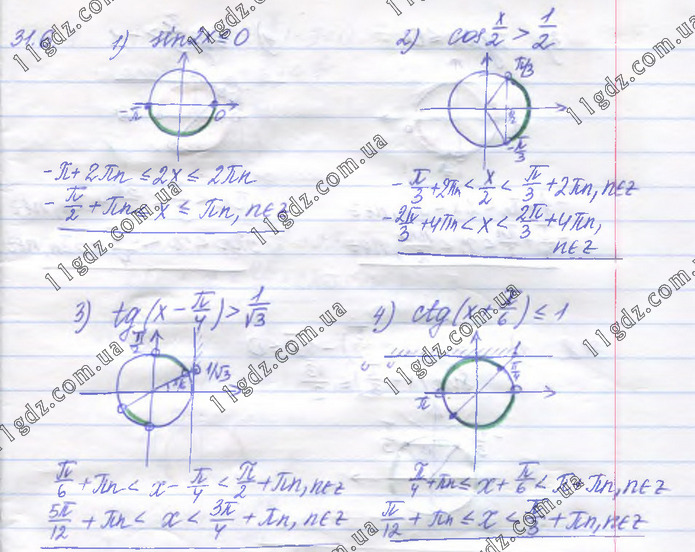 316
1) sin2x ≤ 0
-π 0
-π + 2πn ≤ 2x ≤ 2πn
-π/2 + πn ≤ x ≤ πn, n∈Z
2) cos x/2 > 1/2
π/3
1/2
-π/3
-π/3 + 2πn < x/2 < π/3 + 2πn, n∈Z
-2π/3 + 4πn < x < 2π/3 + 4πn,
n∈Z
3) tg(x - π/4) > 1/√3
π/2
1/√3
π/6 + πn < x - π/4 < π/2 + πn, n∈Z
5π/12 + πn < x < 3π/4 + πn, n∈Z
4) ctg(x + π/6) ≤ 1
1
π/4
π
π/4 + πn ≤ x + π/6 < π + πn, n∈Z
π/12 + πn ≤ x < 5π/6 + πn, n∈Z
11gdz.com.ua